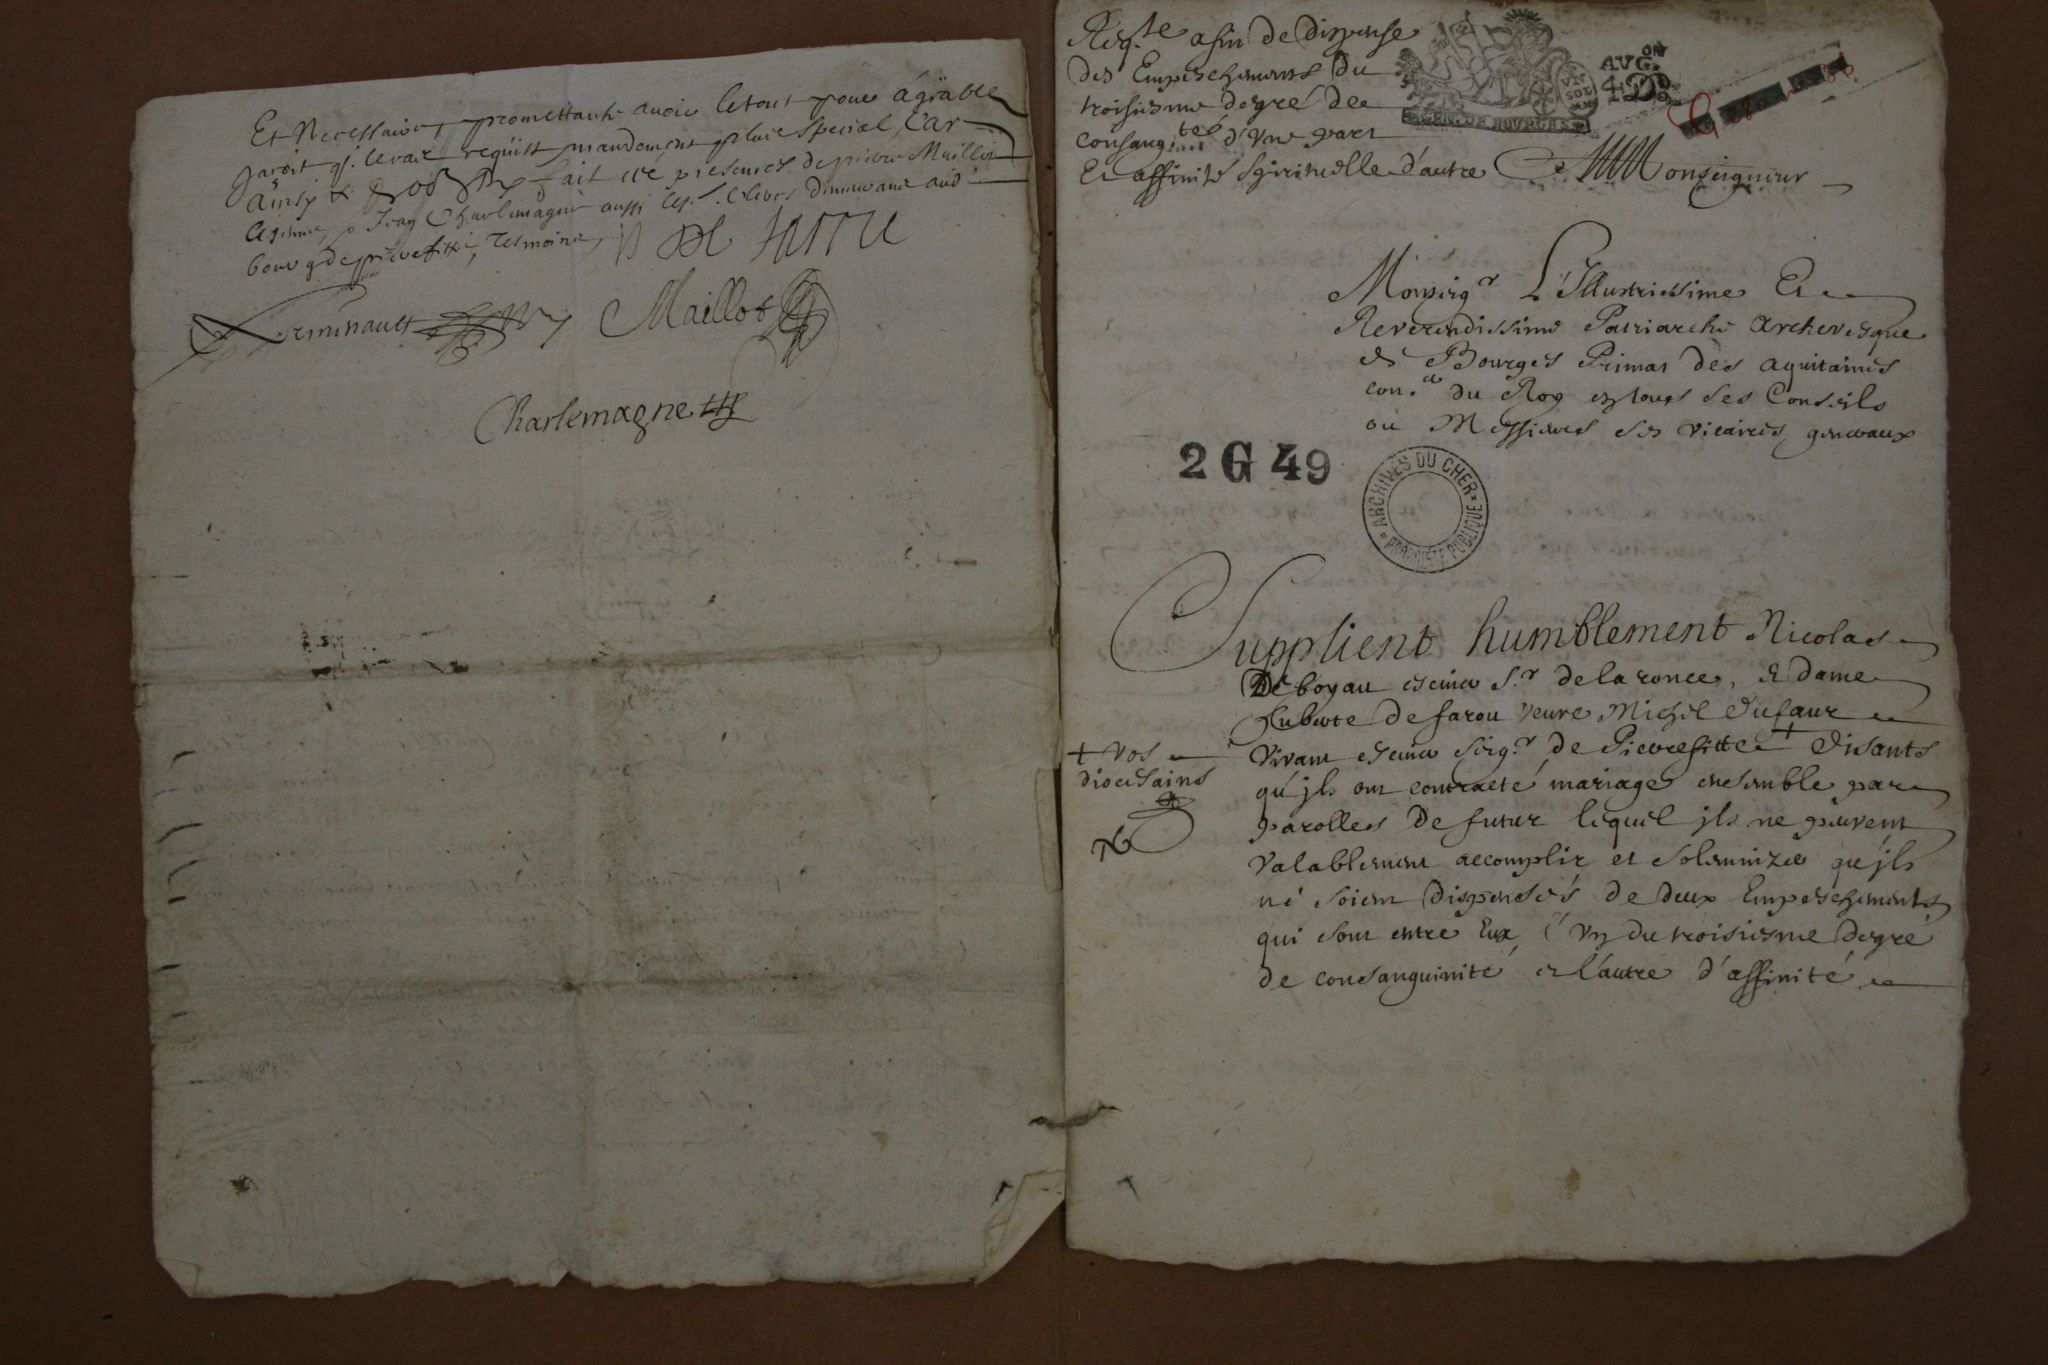 Et Necessaire, promettant avoir le tout pour agréable
jaroit qj. le cas requist mandement plus special, Car
Ainsy &
fait ces presences de pierre Maillot
Jean Charlemagne aussi
bourg de pierrefitte, tesmoins,
Maillot
Charlemagne
Req.te afin de dispense
des Empeschemens du
troisiesme degré de
consang.tes d'Vne part
Et affinité spirituelle d'autre
GEN. DE BOURGES
VN SOL
AVG.ON
4 Drs
A Monseigneur
Monseigr L'Illustrissime Et
Reverendissime Patriarche Archevesque
de Bourges Primat des aquitaines
con.er du Roy en tous ses Conseils
ou Messieurs ses vicaires generaux
2 G 49
ARCHIVES DU CHER
PROPRIÉTÉ PUBLIQUE
Supplient humblement Nicolas
De boyau escuier S.r de la ronce, & dame
de farou veuve Michel Dufaur
vivant escuier seig.r de Pierrefitte + Disants
+ vos
diocesains
qu'jls ont contracté mariage ensemble par
parolles de futur lequel jls ne peuvent
valablement accomplir et solemnizer qu'jls
ne soient dispensés de deux Empeschements
qui sont entre Eux l'vn du troisiesme degré
de consanguinité et l'autre d'affinité